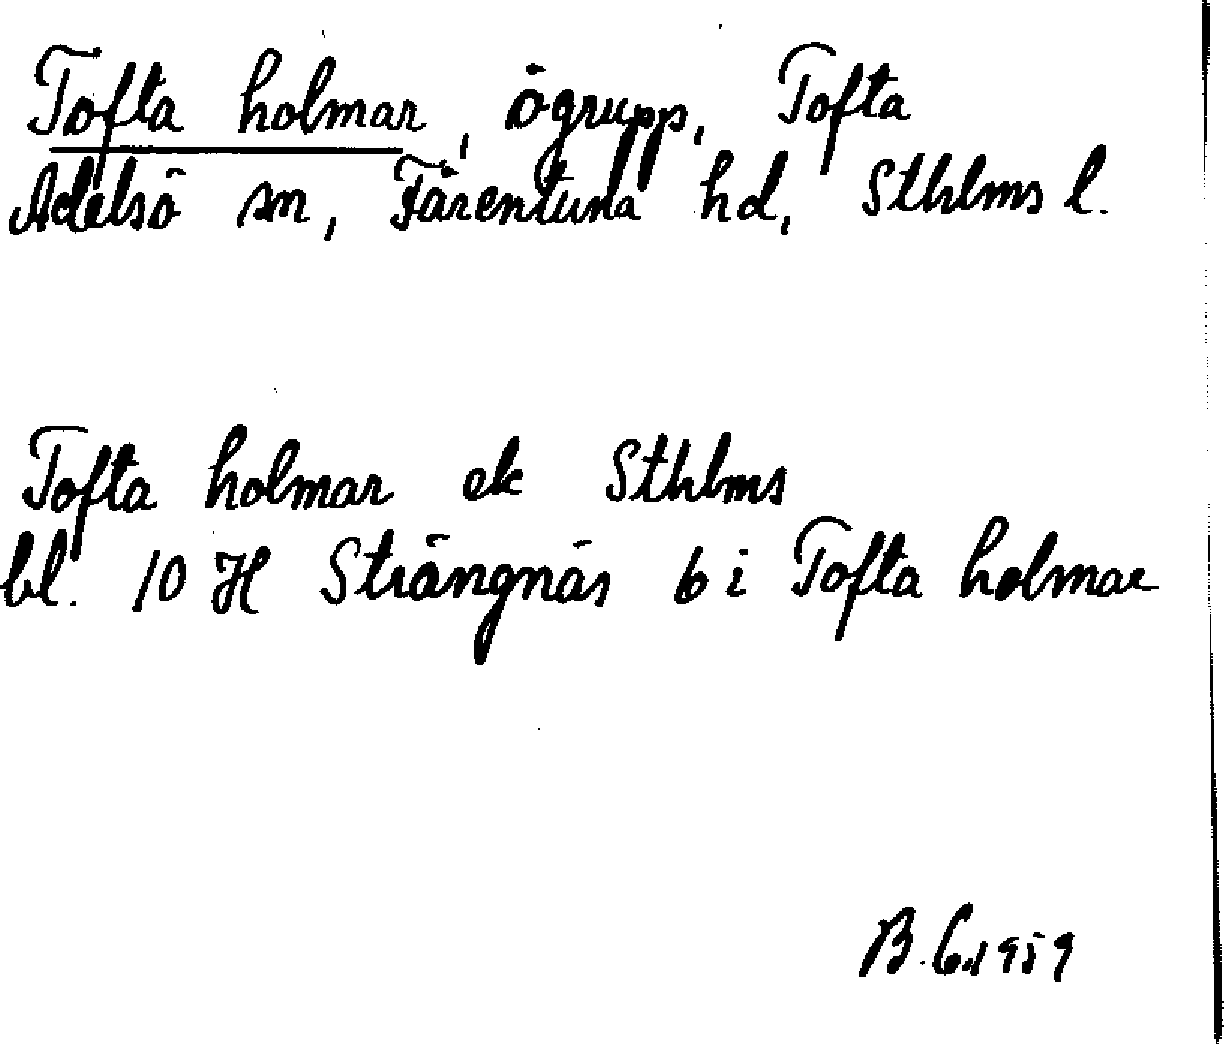 Tofta holmar, ögrupp, Tofta
Adelsö sn, Färentuna hd, Sthlms l.
Tofta holmar ek Sthlms
bl. 10 H Strängnäs 6 i Tofta holmar
B. C. 1959